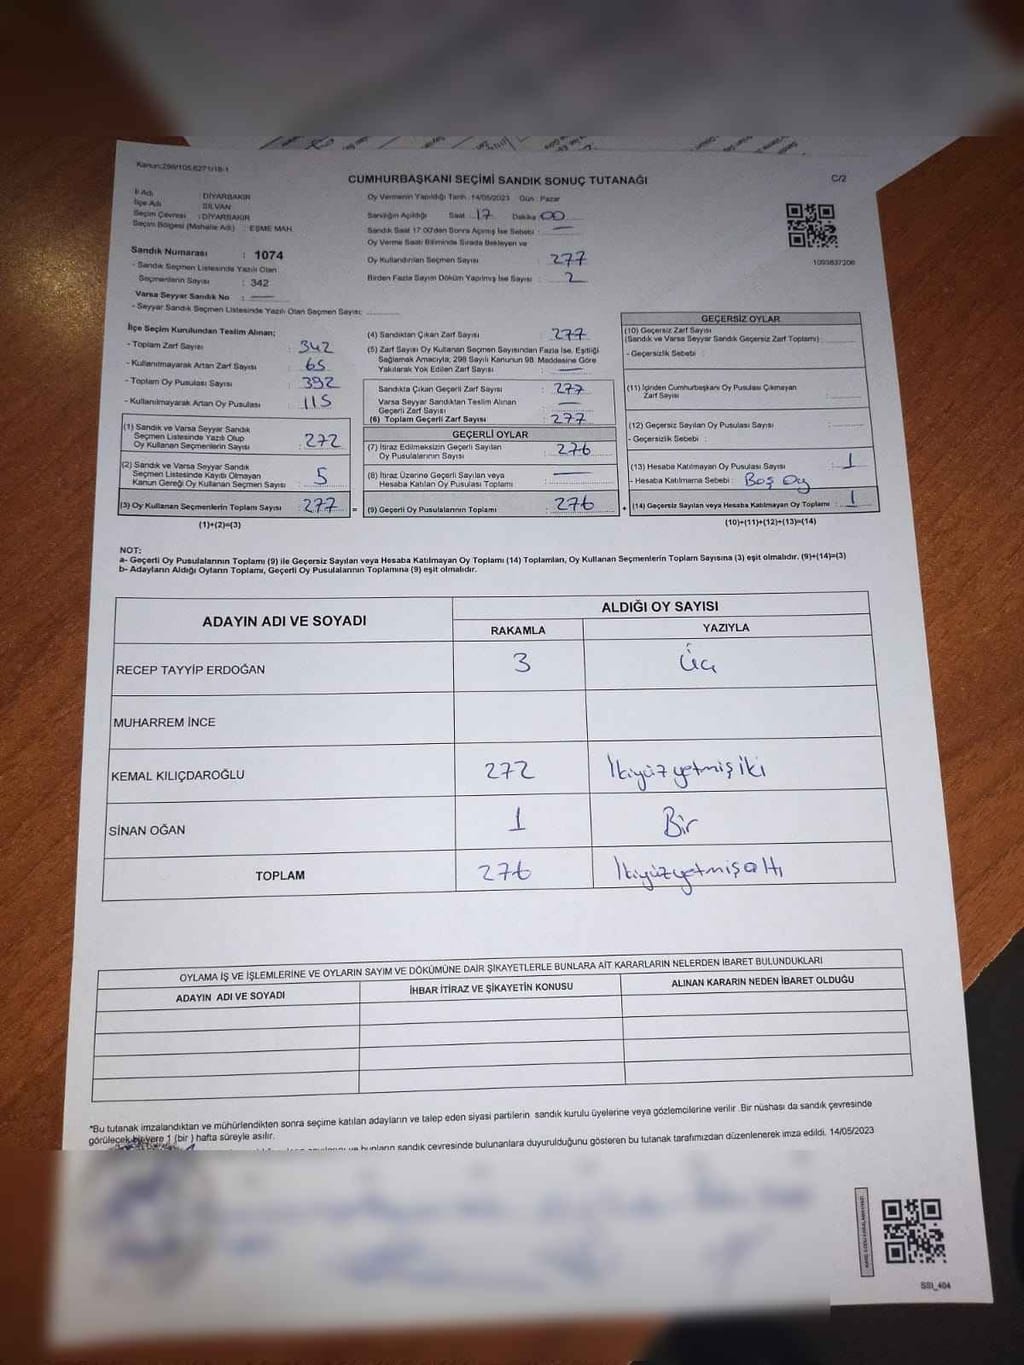 Kanun:298/105,6271/18-1
CUMHURBAŞKANI SEÇİMİ SANDIK SONUÇ TUTANAĞI
C/2
İl Adı : DİYARBAKIR
İlçe Adı : SİLVAN
Seçim Çevresi : DİYARBAKIR
Seçim Bölgesi (Mahalle Adı) : EŞME MAH.
Oy Vermenin Yapıldığı Tarih : 14/05/2023 Gün : Pazar
Sandığın Açıldığı Saat : 17 Dakika : 00
Sandık Saat 17:00'den Sonra Açımış İse Sebebi : —
Oy Verme Saati Bitiminde Sırada Bekleyen ve
Oy Kullandırılan Seçmen Sayısı : 277
Birden Fazla Sayım Döküm Yapılmış İse Sayısı : 2
1093837206
Sandık Numarası : 1074
- Sandık Seçmen Listesinde Yazılı Olan
Seçmenlerin Sayısı : 342
Varsa Seyyar Sandık No : —
- Seyyar Sandık Seçmen Listesinde Yazılı Olan Seçmen Sayısı:
İlçe Seçim Kurulundan Teslim Alınan;
- Toplam Zarf Sayısı : 342
- Kullanılmayarak Artan Zarf Sayısı : 65
- Toplam Oy Pusulası Sayısı : 392
- Kullanılmayarak Artan Oy Pusulası : 115
(1) Sandık ve Varsa Seyyar Sandık
Seçmen Listesinde Yazılı Olup
Oy Kullanan Seçmenlerin Sayısı : 272
(2) Sandık ve Varsa Seyyar Sandık
Seçmen Listesinde Kayıtlı Olmayan
Kanun Gereği Oy Kullanan Seçmen Sayısı : 5
(3) Oy Kullanan Seçmenlerin Toplam Sayısı : 277 =
(1)+(2)=(3)
(4) Sandıktan Çıkan Zarf Sayısı : 277
(5) Zarf Sayısı Oy Kullanan Seçmen Sayısından Fazla İse, Eşitliği
Sağlamak Amacıyla; 298 Sayılı Kanunun 98. Maddesine Göre
Yakılarak Yok Edilen Zarf Sayısı : —
Sandıkta Çıkan Geçerli Zarf Sayısı : 277
Varsa Seyyar Sandıktan Teslim Alınan
Geçerli Zarf Sayısı : —
(6) Toplam Geçerli Zarf Sayısı : 277
GEÇERLİ OYLAR
(7) İtiraz Edilmeksizin Geçerli Sayılan
Oy Pusulalarının Sayısı : 276
(8) İtiraz Üzerine Geçerli Sayılan veya
Hesaba Katılan Oy Pusulası Toplamı : —
(9) Geçerli Oy Pusulalarının Toplamı : 276 +
GEÇERSİZ OYLAR
(10) Geçersiz Zarf Sayısı
(Sandık ve Varsa Seyyar Sandık Geçersiz Zarf Toplamı) :
- Geçersizlik Sebebi :
(11) İçinden Cumhurbaşkanı Oy Pusulası Çıkmayan
Zarf Sayısı :
(12) Geçersiz Sayılan Oy Pusulası Sayısı :
- Geçersizlik Sebebi :
(13) Hesaba Katılmayan Oy Pusulası Sayısı : 1
- Hesaba Katılmama Sebebi : Boş Oy
(14) Geçersiz Sayılan veya Hesaba Katılmayan Oy Toplamı : 1
(10)+(11)+(12)+(13)=(14)
NOT:
a- Geçerli Oy Pusulalarının Toplamı (9) ile Geçersiz Sayılan veya Hesaba Katılmayan Oy Toplamı (14) Toplamları, Oy Kullanan Seçmenlerin Toplam Sayısına (3) eşit olmalıdır. (9)+(14)=(3)
b- Adayların Aldığı Oyların Toplamı, Geçerli Oy Pusulalarının Toplamına (9) eşit olmalıdır.
ADAYIN ADI VE SOYADI
ALDIĞI OY SAYISI
RAKAMLA YAZIYLA
RECEP TAYYİP ERDOĞAN 3 Üç
MUHARREM İNCE
KEMAL KILIÇDAROĞLU 272 İkiyüzyetmişiki
SİNAN OĞAN 1 Bir
TOPLAM 276 İkiyüzyetmişaltı
OYLAMA İŞ VE İŞLEMLERİNE VE OYLARIN SAYIM VE DÖKÜMÜNE DAİR ŞİKAYETLERLE BUNLARA AİT KARARLARIN NELERDEN İBARET BULUNDUKLARI
ADAYIN ADI VE SOYADI İHBAR İTİRAZ VE ŞİKAYETİN KONUSU ALINAN KARARIN NEDEN İBARET OLDUĞU
*Bu tutanak imzalandıktan ve mühürlendikten sonra seçime katılan adayların ve talep eden siyasi partilerin sandık kurulu üyelerine veya gözlemcilerine verilir .Bir nüshası da sandık çevresinde
görülecek bir yere 1 (bir ) hafta süreyle asılır.
bunların sandık çevresinde bulunanlara duyurulduğunu gösteren bu tutanak tarafımızdan düzenlenerek imza edildi. 14/05/2023
SSI_404